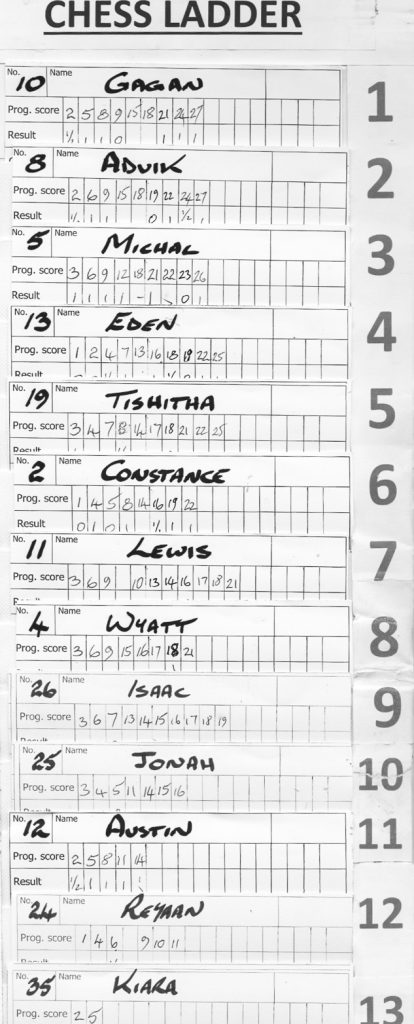 CHESS LADDER
No. 10 Name GAGAN 1
Prog. score 2 5 8 9 15 18 21 24 27
Result ½ 1 1 0 1 1 1
No. 8 Name ADVIK 2
Prog. score 2 6 9 15 18 19 22 24 27
Result ½ 1 1 0 1 ½ 1
No. 5 Name MICHAL 3
Prog. score 3 6 9 12 18 21 22 23 26
Result 1 1 1 1 - 1 0 1
No. 13 Name EDEN 4
Prog. score 1 2 4 7 13 16 18 19 22 25
Result
No. 19 Name TISHITHA 5
Prog. score 3 4 7 8 14 17 18 21 22 25
No. 2 Name CONSTANCE 6
Prog. score 1 4 5 8 14 16 19 22
Result 0 1 0 1 ½ 1 1
No. 11 Name LEWIS 7
Prog. score 3 6 9 10 13 14 16 17 18 21
No. 4 Name WYATT 8
Prog. score 3 6 9 15 16 17 18 21
No. 26 Name ISAAC 9
Prog. score 3 6 7 13 14 15 16 17 18 19
No. 25 Name JONAH 10
Prog. score 3 4 5 11 14 15 16
No. 12 Name AUSTIN 11
Prog. score 2 5 8 11 14
Result ½ 1 1 1 1
No. 24 Name REYAAN 12
Prog. score 1 4 6 9 10 11
No. 35 Name KIARA 13
Prog. score 2 5